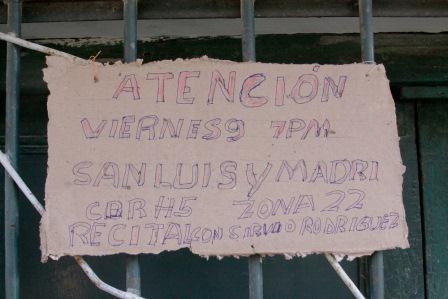 ATENCIÓN
VIERNES 9 7PM
SAN LUIS Y MADRI
CBR H5 ZONA 22
RECITAL CON SILVIO RODRIGUEZ